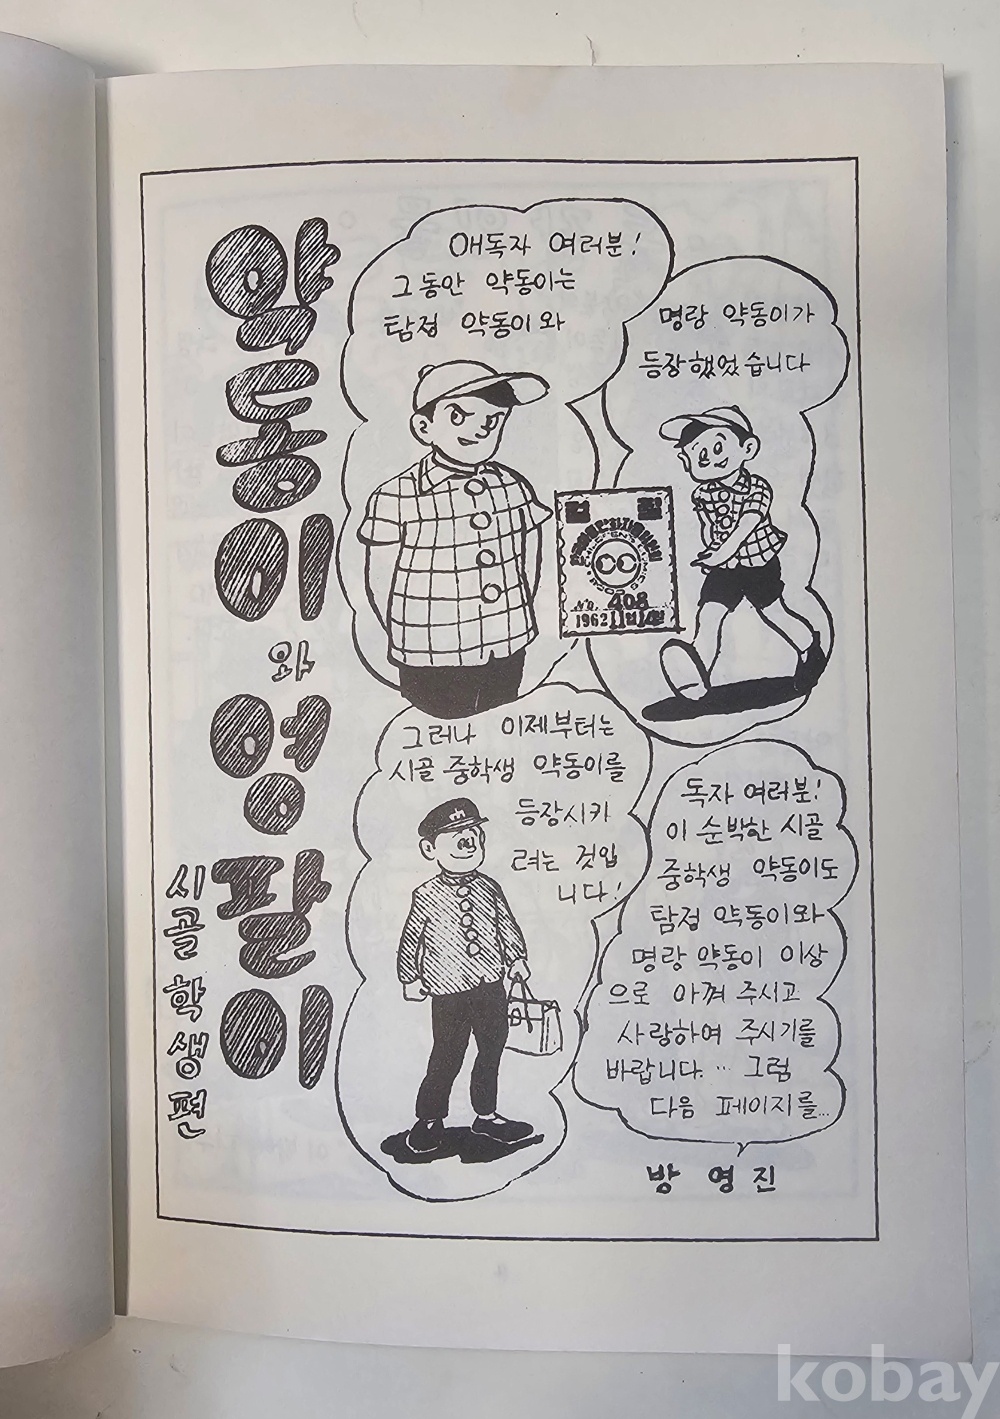 약동이
와
영팔이
시골학생편
애독자 여러분!
그동안 약동이는
탐정 약동이와
명랑 약동이가
등장했었습니다
No. 408
1962 11월 14일
그러나 이제부터는
시골 중학생 약동이를
등장시키
려는 것입
니다!
독자 여러분!
이 순박한 시골
중학생 약동이도
탐정 약동이와
명랑 약동이 이상
으로 아껴 주시고
사랑하여 주시기를
바랍니다. … 그럼
다음 페이지를…
방 영 진
kobay